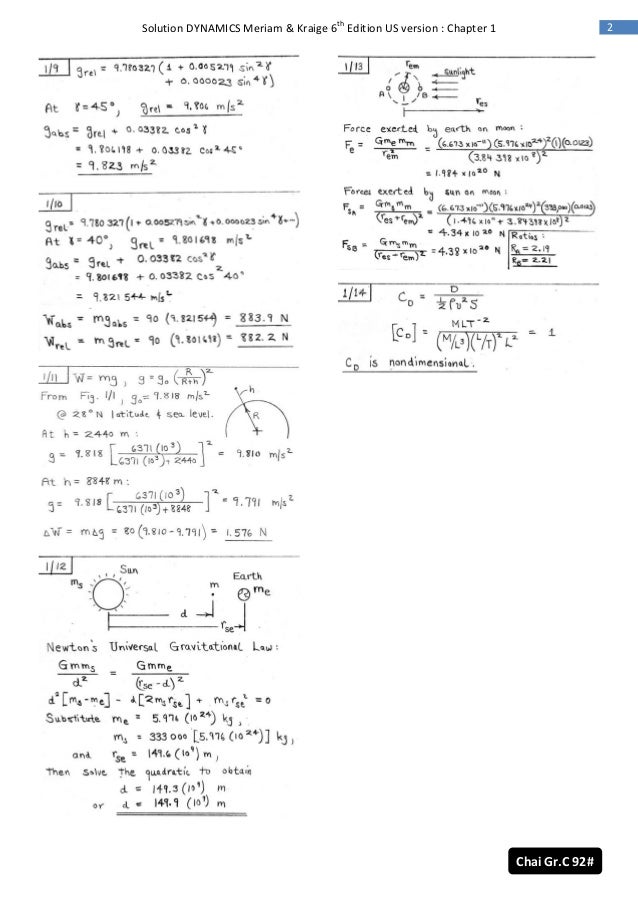 Solution DYNAMICS Meriam & Kraige 6th Edition US version : Chapter 1
2
1/9 g_rel = 9.780327 (1 + 0.005279 sin²γ
+ 0.000023 sin⁴γ)
At γ = 45°, g_rel = 9.806 m/s²
g_abs = g_rel + 0.03382 cos²γ
= 9.806198 + 0.03382 cos²45°
= 9.823 m/s²
1/10
g_rel = 9.780 327 (1 + 0.005279 sin²γ + 0.000023 sin⁴γ + --)
At γ = 40°, g_rel = 9.801698 m/s²
g_abs = g_rel + 0.03382 cos²γ
= 9.801698 + 0.03382 cos²40°
= 9.821544 m/s²
W_abs = m g_abs = 90 (9.821544) = 883.9 N
W_rel = m g_rel = 90 (9.801698) = 882.2 N
1/11 W = mg, g = g₀ (R/(R+h))²
From Fig. 1/1, g₀ = 9.818 m/s²
@ 28° N latitude & sea level.
h
R
At h = 2440 m :
g = 9.818 [6371 (10³) / (6371 (10³) + 2440)]² = 9.810 m/s²
At h = 8848 m :
g = 9.818 [6371 (10³) / (6371 (10³) + 8848)]² = 9.791 m/s²
ΔW = mΔg = 80 (9.810 - 9.791) = 1.576 N
1/12 Sun
Earth
m_s m m_e
d
r_se
Newton's Universal Gravitational Law :
Gmm_s/d² = Gmm_e/(r_se - d)²
d² [m_s - m_e] - d [2m_s r_se] + m_s r_se² = 0
Substitute m_e = 5.976 (10²⁴) kg,
m_s = 333 000 [5.976 (10²⁴)] kg,
and r_se = 149.6 (10⁹) m,
Then solve the quadratic to obtain
d = 149.3 (10⁹) m
or d = 149.9 (10⁹) m
1/13 r_em sunlight
A B
r_es
Force exerted by earth on moon :
F_e = Gm_e m_m / r_em² = (6.673 x 10⁻¹¹) (5.976 x 10²⁴)² (1)(0.0123) / (3.84 398 x 10⁸)²
= 1.984 x 10²⁰ N
Forces exerted by sun on moon :
F_SA = Gm_s m_m / (r_es + r_em)² = (6.673 x 10⁻¹¹) (5.976 x 10²⁴)² (333,000) (0.0123) / (1.496 x 10¹¹ + 3.84398 x 10⁸)²
= 4.34 x 10²⁰ N
F_SB = Gm_s m_m / (r_es - r_em)² = 4.38 x 10²⁰ N
Ratios :
R_A = 2.19
R_B = 2.21
1/14 C_D = D / (½ρv²S)
[C_D] = MLT⁻² / ((M/L³) (L/T)² L²) = 1
C_D is nondimensional.
Chai Gr.C 92#